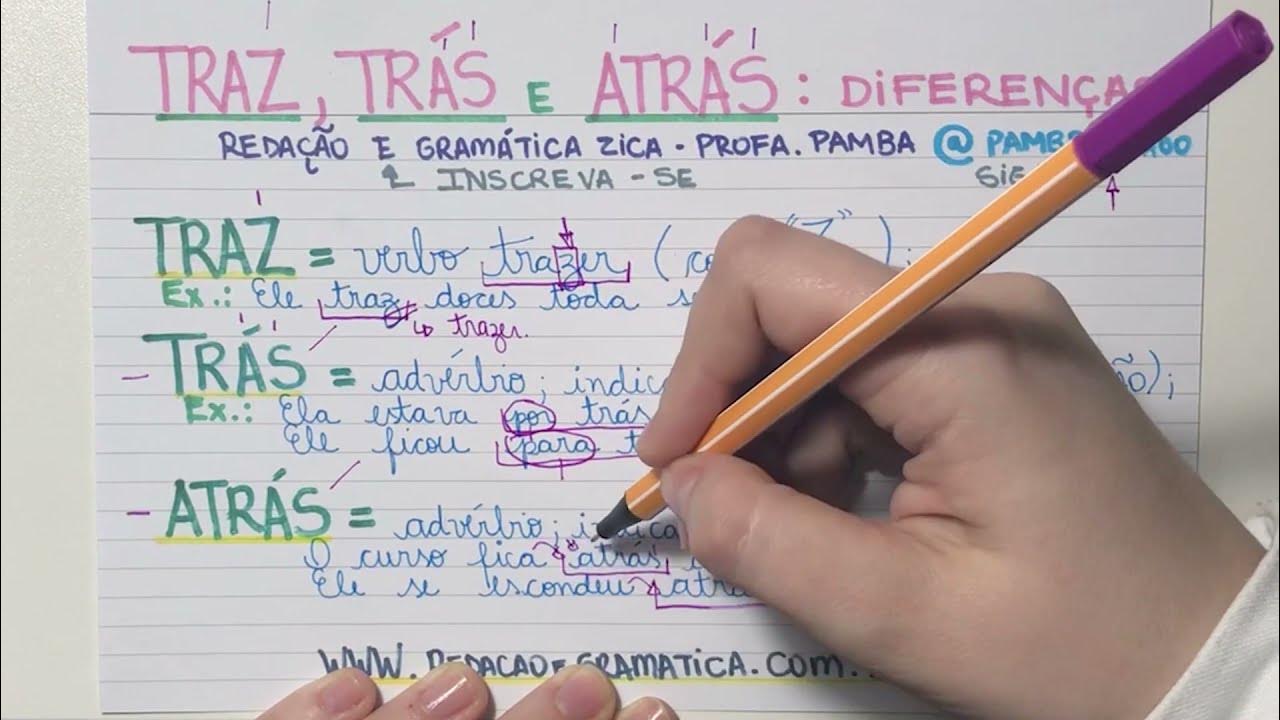 TRAZ, TRÁS E ATRÁS: DIFERENÇAS
REDAÇÃO E GRAMÁTICA ZICA - PROFA. PAMBA @
INSCREVA-SE
TRAZ = verbo trazer ( "Z" );
Ex.: Ele traz doces toda
trazer.
- TRÁS = advérbio; indica );
Ex.: Ela estava por trás
Ele ficou para
- ATRÁS = advérbio; indica
O curso fica atrás
Ele se escondeu
WWW.REDACAOEGRAMATICA.COM.